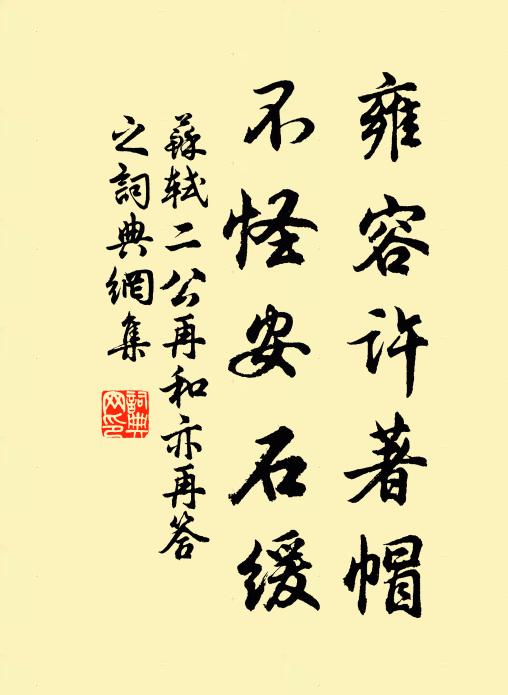 雍容許著帽
不怪安石緩
蘇軾二公再和亦再答
之詞典網集
詞典
网印